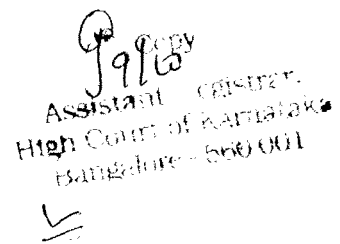 Copy
Assistant Registrar,
High Court of Karnataka
Bangalore - 560 001